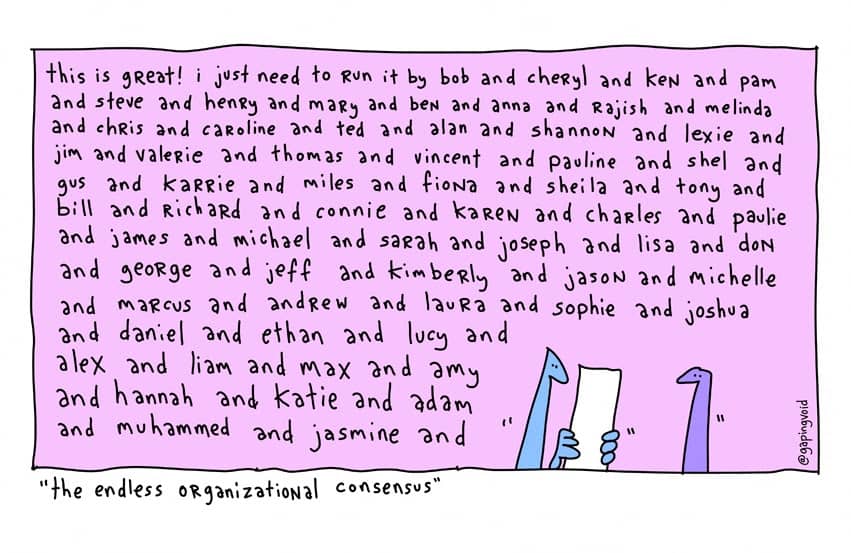 this is great! i just need to run it by bob and cheryl and ken and pam
and steve and henry and mary and ben and anna and rajish and melinda
and chris and caroline and ted and alan and shannon and lexie and
jim and valerie and thomas and vincent and pauline and shel and
gus and karrie and miles and fiona and sheila and tony and
bill and richard and connie and karen and charles and paulie
and james and michael and sarah and joseph and lisa and don
and george and jeff and kimberly and jason and michelle
and marcus and andrew and laura and sophie and joshua
and daniel and ethan and lucy and
alex and liam and max and amy
and hannah and katie and adam
and muhammed and jasmine and
@gapingvoid
"the endless organizational consensus"